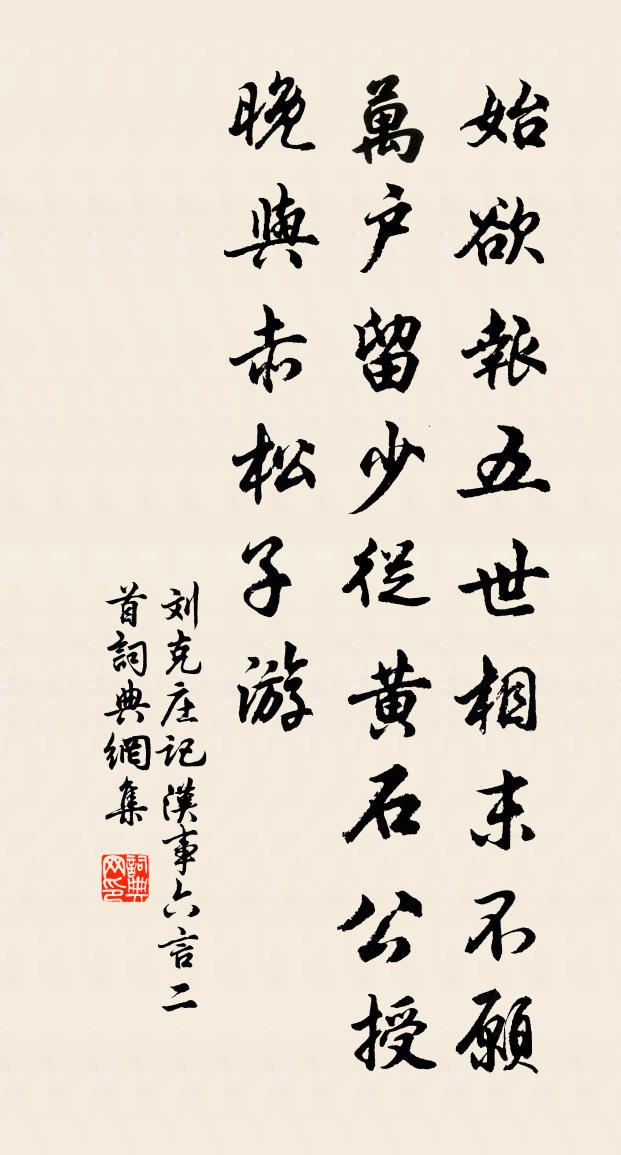 始欲報五世相末不願
萬户留少從黄石公授
晚與赤松子游
刘克庄記漢事六言二
首詞典網集
詞典网印